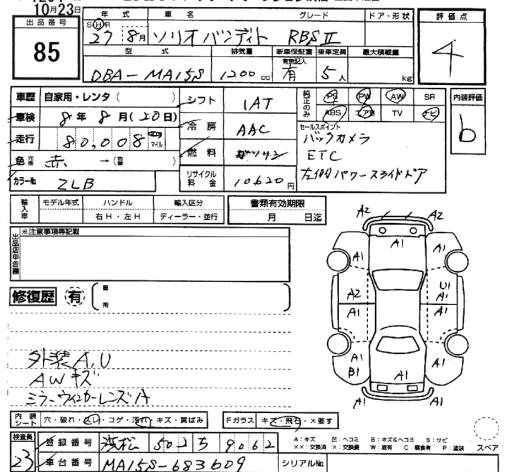 10月23日
出品番号 年式 車名 グレード ドア・形状 評価点
85 27 8月 ソリオバンディト RBSⅡ 4
型式 排気量 新車保証書 乗車定員 最大積載量
DBA-MA15S 1200cc 有 5人 kg
車歴 自家用・レンタ( ) シフト 1AT 純正のみ PS PW AW SR 内装評価
車検 8年8月(20日) 冷房 AAC ABS エアB TV ナビ b
走行 80,008 マイル 燃料 ガソリン セールスポイント
バックカメラ
ETC
左側パワースライドドア
色 赤 →( )
カラーNo ZLB リサイクル料金 10620円
輸入車 モデル年式 ハンドル 輸入区分 書類有効期限
右H・左H ディーラー・並行 月 日迄
※注意事項等記載
修復歴 有 ( 箇所
A2 A2
A1 A1 A1
A1 A1
A2 A1 U1 A1
A1 A1
A1 B1 A1
A1
外装A,U
AWキズ
ミラーウィンカーレンズA
内装シート 穴・破れ・コゲ・汚れ・キズ・黄ばみ Fガラス キズ・飛石・×要す
A:キズ 凹:ヘコミ B:キズ&ヘコミ S:サビ
××:交換済 ×:要交換 W:波有 C:腐食有 P:塗装 スペア
検査員 23 登録番号 浜松 502 5 9062
車台番号 MA15S-683609 シリアルNo